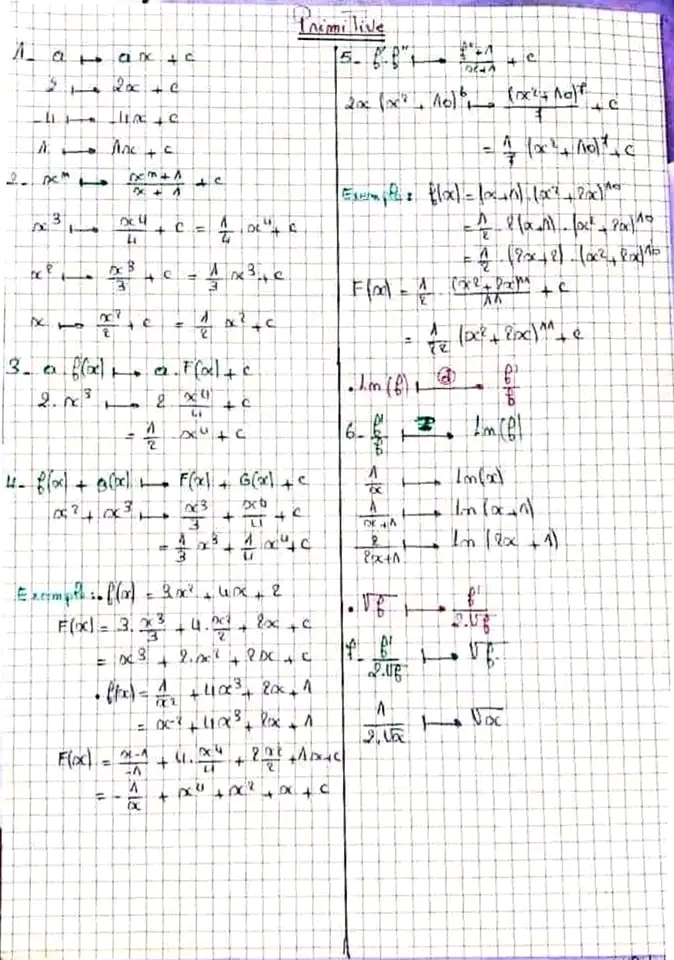 Primitive
1- a ↦ ax + c
2 ↦ 2x + c
-4 ↦ -4x + c
1 ↦ 1x + c
2- xⁿ ↦ xⁿ⁺¹/x+1 + c
x³ ↦ x⁴/4 + c = 1/4 x⁴ + c
x² ↦ x³/3 + c = 1/3 x³ + c
x ↦ x²/2 + c = 1/2 x² + c
3- a.f(x) ↦ a.F(x) + c
2.x³ ↦ 2 x⁴/4 + c
= 1/2 x⁴ + c
4- f(x) + g(x) ↦ F(x) + G(x) + c
x² + x³ ↦ x³/3 + x⁴/4 + c
= 1/3 x³ + 1/4 x⁴ + c
Exemple: f(x) = 3x² + 4x + 2
F(x) = 3.x³/3 + 4.x²/2 + 2x + c
= x³ + 2.x² + 2x + c
• f(x) = 1/x² + 4x³ + 2x + 1
= x⁻² + 4x³ + 2x + 1
F(x) = x⁻¹/-1 + 4.x⁴/4 + 2x²/2 + 1x + c
= -1/x + x⁴ + x² + x + c
5- f'.fⁿ ↦ fⁿ⁺¹/n+1 + c
2x (x² + 10)⁶ ↦ (x² + 10)⁷/7 + c
= 1/7 (x² + 10)⁷ + c
Exemple: f(x) = (x+1).(x² + 2x)¹⁰
= 1/2 . 2(x+1) . (x² + 2x)¹⁰
= 1/2 . (2x+2) . (x² + 2x)¹⁰
F(x) = 1/2 . (x² + 2x)¹¹/11 + c
= 1/22 (x² + 2x)¹¹ + c
• ln(f) ↦ f'/f
6- f'/f ↦ ln(f)
1/x ↦ ln(x)
1/x+1 ↦ ln(x+1)
2/2x+1 ↦ ln(2x + 1)
• √f ↦ f'/2.√f
7- f'/2.√f ↦ √f
1/2.√x ↦ √x